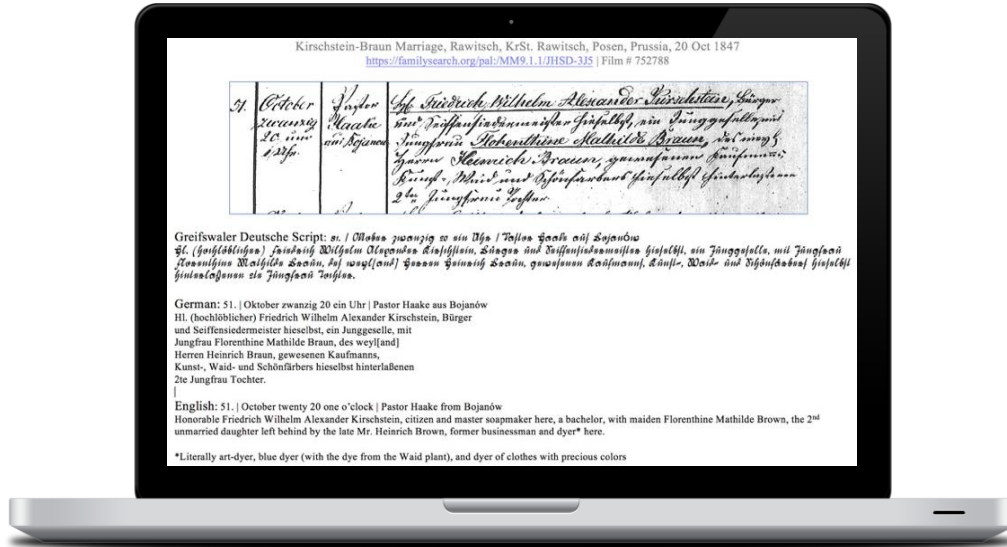 Kirschstein-Braun Marriage, Rawitsch, KrSt. Rawitsch, Posen, Prussia, 20 Oct 1847
https://familysearch.org/pal:/MM9.1.1/JHSD-3J5 | Film # 752788
51. October Pastor Hl. Friedrich Wilhelm Alexander Kirschstein, Bürger
zwanzig Haake und Seiffensiedermeister hieselbst, ein Junggeselle, mit
20 um aus Bojanowo Jungfrau Florenthine Mathilde Braun, des weyl.
1 Uhr. Herrn Heinrich Braun, gewesenen Kaufmanns,
Kunst-, Waid und Schönfärbers hieselbst hinterlassenen
2te Jungfrau Tochter
Greifswaler Deutsche Script: 51. | Oktober zwanzig 20 ein Uhr | Pastor Haake aus Bojanów
Hl. (hochlöblicher) Friedrich Wilhelm Alexander Kirschstein, Bürger und Seiffensiedermeister hieselbst, ein Junggeselle, mit Jungfrau
Florenthine Mathilde Braun, des weyl[and] Herren Heinrich Braun, gewesenen Kaufmanns, Kunst-, Waid- und Schönfärbers hieselbst
hinterlaßenen 2te Jungfrau Tochter.
German: 51. | Oktober zwanzig 20 ein Uhr | Pastor Haake aus Bojanów
Hl. (hochlöblicher) Friedrich Wilhelm Alexander Kirschstein, Bürger
und Seiffensiedermeister hieselbst, ein Junggeselle, mit
Jungfrau Florenthine Mathilde Braun, des weyl[and]
Herren Heinrich Braun, gewesenen Kaufmanns,
Kunst-, Waid- und Schönfärbers hieselbst hinterlaßenen
2te Jungfrau Tochter.
English: 51. | October twenty 20 one o'clock | Pastor Haake from Bojanów
Honorable Friedrich Wilhelm Alexander Kirschstein, citizen and master soapmaker here, a bachelor, with maiden Florenthine Mathilde Brown, the 2nd
unmarried daughter left behind by the late Mr. Heinrich Brown, former businessman and dyer* here.
*Literally art-dyer, blue dyer (with the dye from the Waid plant), and dyer of clothes with precious colors